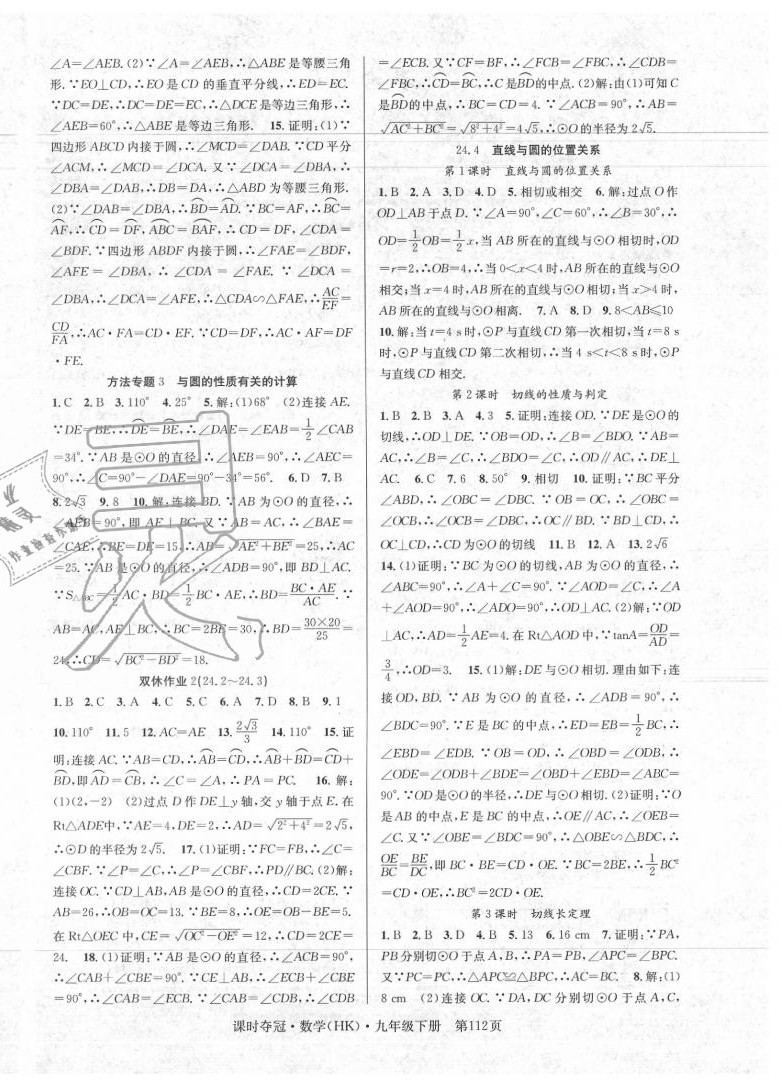 ∠A=∠AEB. (2)∵∠A=∠AEB,∴△ABE是等腰三角
形.∵EO⊥CD,∴EO是CD的垂直平分线,∴ED=EC.
∵DC=DE,∴DC=DE=EC,∴△DCE是等边三角形,∴
∠AEB=60°,∴△ABE是等边三角形. 15.证明:(1)∵
四边形ABCD内接于圆,∴∠MCD=∠DAB.∵CD平分
∠ACM,∴∠MCD=∠DCA.又∵∠DCA=∠DBA,∴
∠DBA=∠DAB,∴DB=DA,∴△ABD为等腰三角形.
(2)∵∠DAB=∠DBA,∴B͡D=A͡D.∵BC=AF,∴B͡C=
A͡F,∴C͡D=D͡F,A͡BC=B͡AF,∴CD=DF,∠CDA=
∠BDF.∵四边形ABDF内接于圆,∴∠FAE=∠BDF,
∠AFE=∠DBA,∴∠CDA=∠FAE.∵∠DCA=
∠DBA,∴∠DCA=∠AFE,∴△CDA∽△FAE,∴AC/EF=
CD/FA,∴AC·FA=CD·EF.∵CD=DF,∴AC·AF=DF
·FE.
方法专题3 与圆的性质有关的计算
1.C 2.B 3.110° 4.25° 5.解:(1)68° (2)连接AE.
∵DE=BE,∴D͡E=B͡E,∴∠DAE=∠EAB=1/2∠CAB
=34°.∵AB是⊙O的直径,∴∠AEB=90°,∴∠AEC=
90°,∴∠C=90°-∠DAE=90°-34°=56°. 6.D 7.B
8.2√3 9.8 10.解:连接BD.∵AB为⊙O的直径,∴
∠AEB=90°,即AE⊥BC.又∵AB=AC,∴∠BAE=
∠CAE,∴BE=DE=15,∴AB=√(AE²+BE²)=25,∴AC
=25.∵AB是⊙O的直径,∴∠ADB=90°,即BD⊥AC.
∵S△ABC=1/2AC·BD=1/2BC·AE,∴BD=BC·AE/AC.∵
AB=AC,AE⊥BC,∴BC=2BE=30,∴BD=30×20/25=
24,∴CD=√(BC²-BD²)=18.
双休作业2(24.2~24.3)
1.B 2.C 3.A 4.C 5.C 6.A 7.D 8.B 9.1
10.110° 11.5 12.AC=AE 13.2√3/3 14.110° 15.证
明:连接AC.∵AB=CD,∴A͡B=C͡D,∴A͡B+B͡D=C͡D+
B͡D,即A͡D=C͡B,∴∠C=∠A,∴PA=PC. 16.解:
(1)(2,-2) (2)过点D作DE⊥y轴,交y轴于点E.在
Rt△ADE中,∵AE=4,DE=2,∴AD=√(2²+4²)=2√5,
∴⊙D的半径为2√5. 17.(1)证明:∵FC=FB,∴∠C=
∠CBF.∵∠P=∠C,∴∠P=∠CBF,∴PD∥BC.(2)解:
连接OC.∵CD⊥AB,AB是⊙O的直径,∴CD=2CE.∵
AB=26,∴OB=OC=13.∵BE=8,∴OE=OB-BE=5.
在Rt△OEC中,CE=√(OC²-OE²)=12,∴CD=2CE=
24. 18.(1)证明:∵AB是⊙O的直径,∴∠ACB=90°,
∴∠CAB+∠CBE=90°.∵CE⊥AB,∴∠ECB+∠CBE
=90°,∴∠CAB=∠ECB.∵∠CAB=∠CDB,∴∠CDB
=∠ECB.又∵CF=BF,∴∠FCB=∠FBC,∴∠CDB=
∠FBC,∴C͡D=B͡C,∴C是B͡D的中点.(2)解:由(1)可知C
是B͡D的中点,∴BC=CD=4.∵∠ACB=90°,∴AB=
√(AC²+BC²)=√(8²+4²)=4√5,∴⊙O的半径为2√5.
24.4 直线与圆的位置关系
第1课时 直线与圆的位置关系
1.B 2.A 3.D 4.D 5.相切或相交 6.解:过点O作
OD⊥AB于点D.∵∠A=90°,∠C=60°,∴∠B=30°,∴
OD=1/2OB=1/2x,当AB所在的直线与⊙O相切时,OD
=r=2,∴OB=4,∴当0<x<4时,AB所在的直线与⊙O
相交;当x=4时,AB所在的直线与⊙O相切;当x>4时,
AB所在的直线与⊙O相离. 7.A 8.D 9.8<AB≤10
10.解:当t=4 s时,⊙P与直线CD第一次相切,当t=8 s
时,⊙P与直线CD第二次相切,∴当4 s<t<8 s时,⊙P
与直线CD相交.
第2课时 切线的性质与判定
1.B 2.B 3.A 4.3 5.证明:连接OD.∵DE是⊙O的
切线,∴OD⊥DE.∵OB=OD,∴∠B=∠BDO.∵AB=
AC,∴∠B=∠C,∴∠BDO=∠C,∴OD∥AC,∴DE⊥
AC. 6.C 7.6 8.50° 9.相切 10.证明:∵BC平分
∠ABD,∴∠OBC=∠DBC.∵OB=OC,∴∠OBC=
∠OCB,∴∠OCB=∠DBC,∴OC∥BD.∵BD⊥CD,∴
OC⊥CD,∴CD为⊙O的切线 11.B 12.A 13.2√6
14.(1)证明:∵BC为⊙O的切线,AB为⊙O的直径,∴
∠ABC=90°,∴∠A+∠C=90°.∵∠AOD=∠C,∴∠A
+∠AOD=90°,∴∠ADO=90°,∴OD⊥AC.(2)解:∵OD
⊥AC,∴AD=1/2AE=4.在Rt△AOD中,∵tanA=OD/AD=
3/4,∴OD=3. 15.(1)解:DE与⊙O相切.理由如下:连
接OD,BD.∵AB为⊙O的直径,∴∠ADB=90°,∴
∠BDC=90°.∵E是BC的中点,∴ED=EB=1/2BC,∴
∠EBD=∠EDB.∵OB=OD,∴∠OBD=∠ODB,∴
∠ODE=∠ODB+∠BDE=∠OBD+∠EBD=∠ABC=
90°.∵OD是⊙O的半径,∴DE与⊙O相切.(2)证明:∵O
是AB的中点,E是BC的中点,∴OE∥AC,∴∠OEB=
∠C.又∵∠OBE=∠BDC=90°,∴△OBE∽△BDC,∴
OE/BC=BE/DC,即BC·BE=CD·OE.∵BC=2BE,∴1/2BC²
=CD·OE,∴BC²=2CD·OE.
第3课时 切线长定理
1.B 2.B 3.D 4.B 5.13 6.16 cm 7.证明:∵PA,
PB分别切⊙O于点A,B,∴PA=PB,∠APC=∠BPC.
又∵PC=PC,∴△APC≌△BPC,∴AC=BC. 8.解:(1)
8 cm (2)连接OC.∵DA,DC分别切⊙O于点A,C,
课时夺冠·数学(HK)·九年级下册 第112页